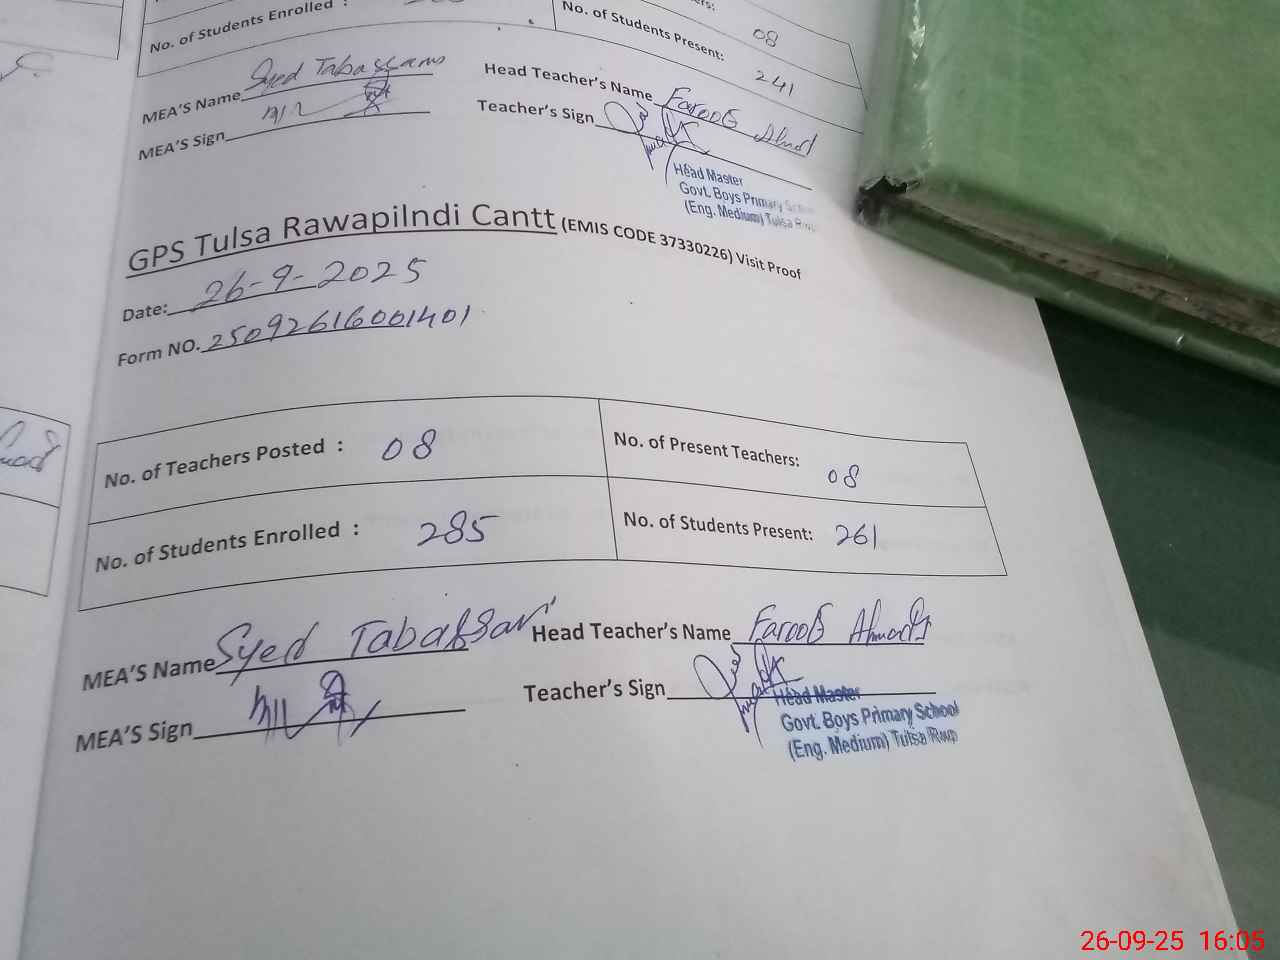 No. of Students Enrolled :
No. of Students Present:
08
241
MEA'S Name Syed Tabassam
Head Teacher's Name Farooq Ahmad
MEA'S Sign
Teacher's Sign
Head Master
Govt. Boys Primary School
(Eng. Medium) Tulsa Rwp
GPS Tulsa Rawapilndi Cantt (EMIS CODE 37330226) Visit Proof
Date: 26-9-2025
Form NO. 25092616001401
No. of Teachers Posted : 08
No. of Present Teachers: 08
No. of Students Enrolled : 285
No. of Students Present: 261
MEA'S Name Syed Tabassam
Head Teacher's Name Farooq Ahmad
MEA'S Sign
Teacher's Sign
Head Master
Govt. Boys Primary School
(Eng. Medium) Tulsa Rwp
26-09-25 16:05